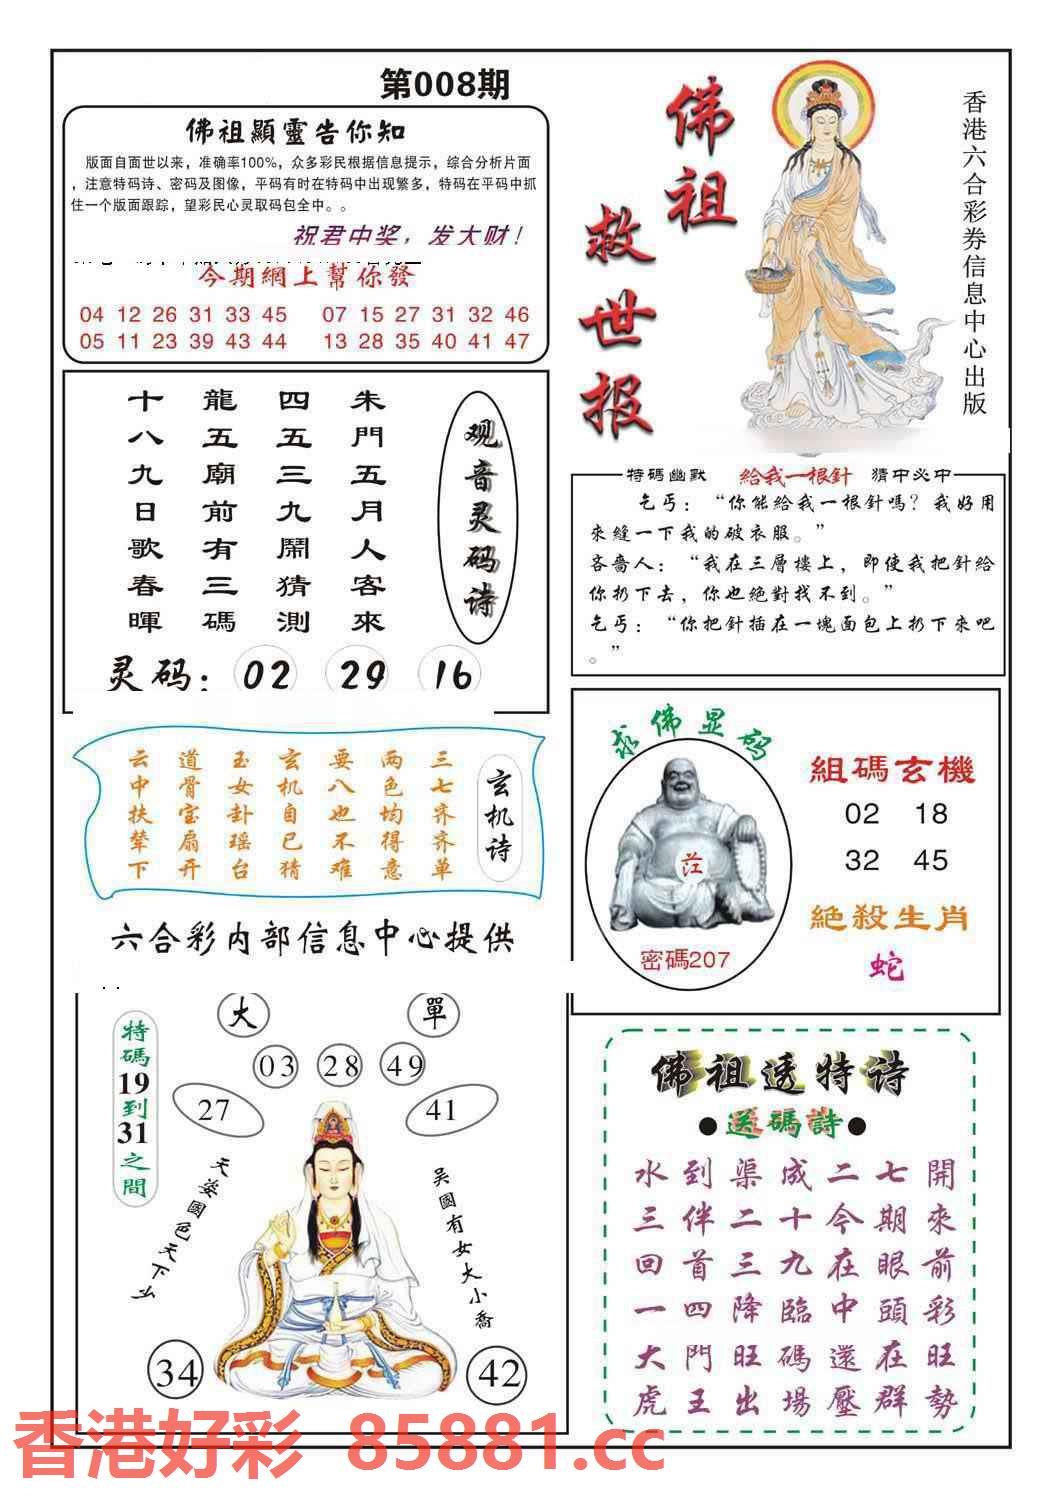 第008期
佛祖顯靈告你知
版面自面世以来，准确率100%，众多彩民根据信息提示，综合分析片面
，注意特码诗、密码及图像，平码有时在特码中出现繁多，特码在平码中抓
住一个版面跟踪，望彩民心灵取码包全中。。
祝君中奖，发大财！
今期網上幫你發
04 12 26 31 33 45 07 15 27 31 32 46
05 11 23 39 43 44 13 28 35 40 41 47
佛祖
救世报
香港六合彩券信息中心出版
观音灵码诗
朱門五月人客來
四五三九鬧猜測
龍五廟前有三碼
十八九日歌春暉
灵码：02 29 16
特碼幽默 給我一根針 猜中必中
乞丐：“你能給我一根針嗎？我好用
來縫一下我的破衣服。”
吝嗇人：“我在三層樓上，即使我把針給
你扔下去，你也絕對找不到。”
乞丐：“你把針插在一塊面包上扔下來吧
。”
玄机诗
三七齐齐单
两色均得意
要八也不难
玄机自已猜
玉女卦瑶台
道骨宝扇开
云中扶辇下
六合彩内部信息中心提供
求佛显码
茳
密碼207
組碼玄機
02 18
32 45
絕殺生肖
蛇
特碼19到31之間
大 單
03 28 49
27 41
天姿國色天下么
吴國有女大小喬
34 42
佛祖透特诗
●送碼詩●
水到渠成二七開
三伴二十今期來
回首三九在眼前
一四降臨中頭彩
大門旺碼還在旺
虎王出場壓群勢
香港好彩 85881.cc